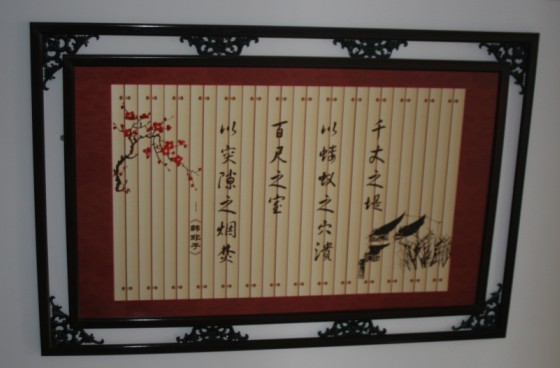 千丈之堤
以蝼蚁之穴溃
百尺之室
以突隙之烟焚
——《韩非子》